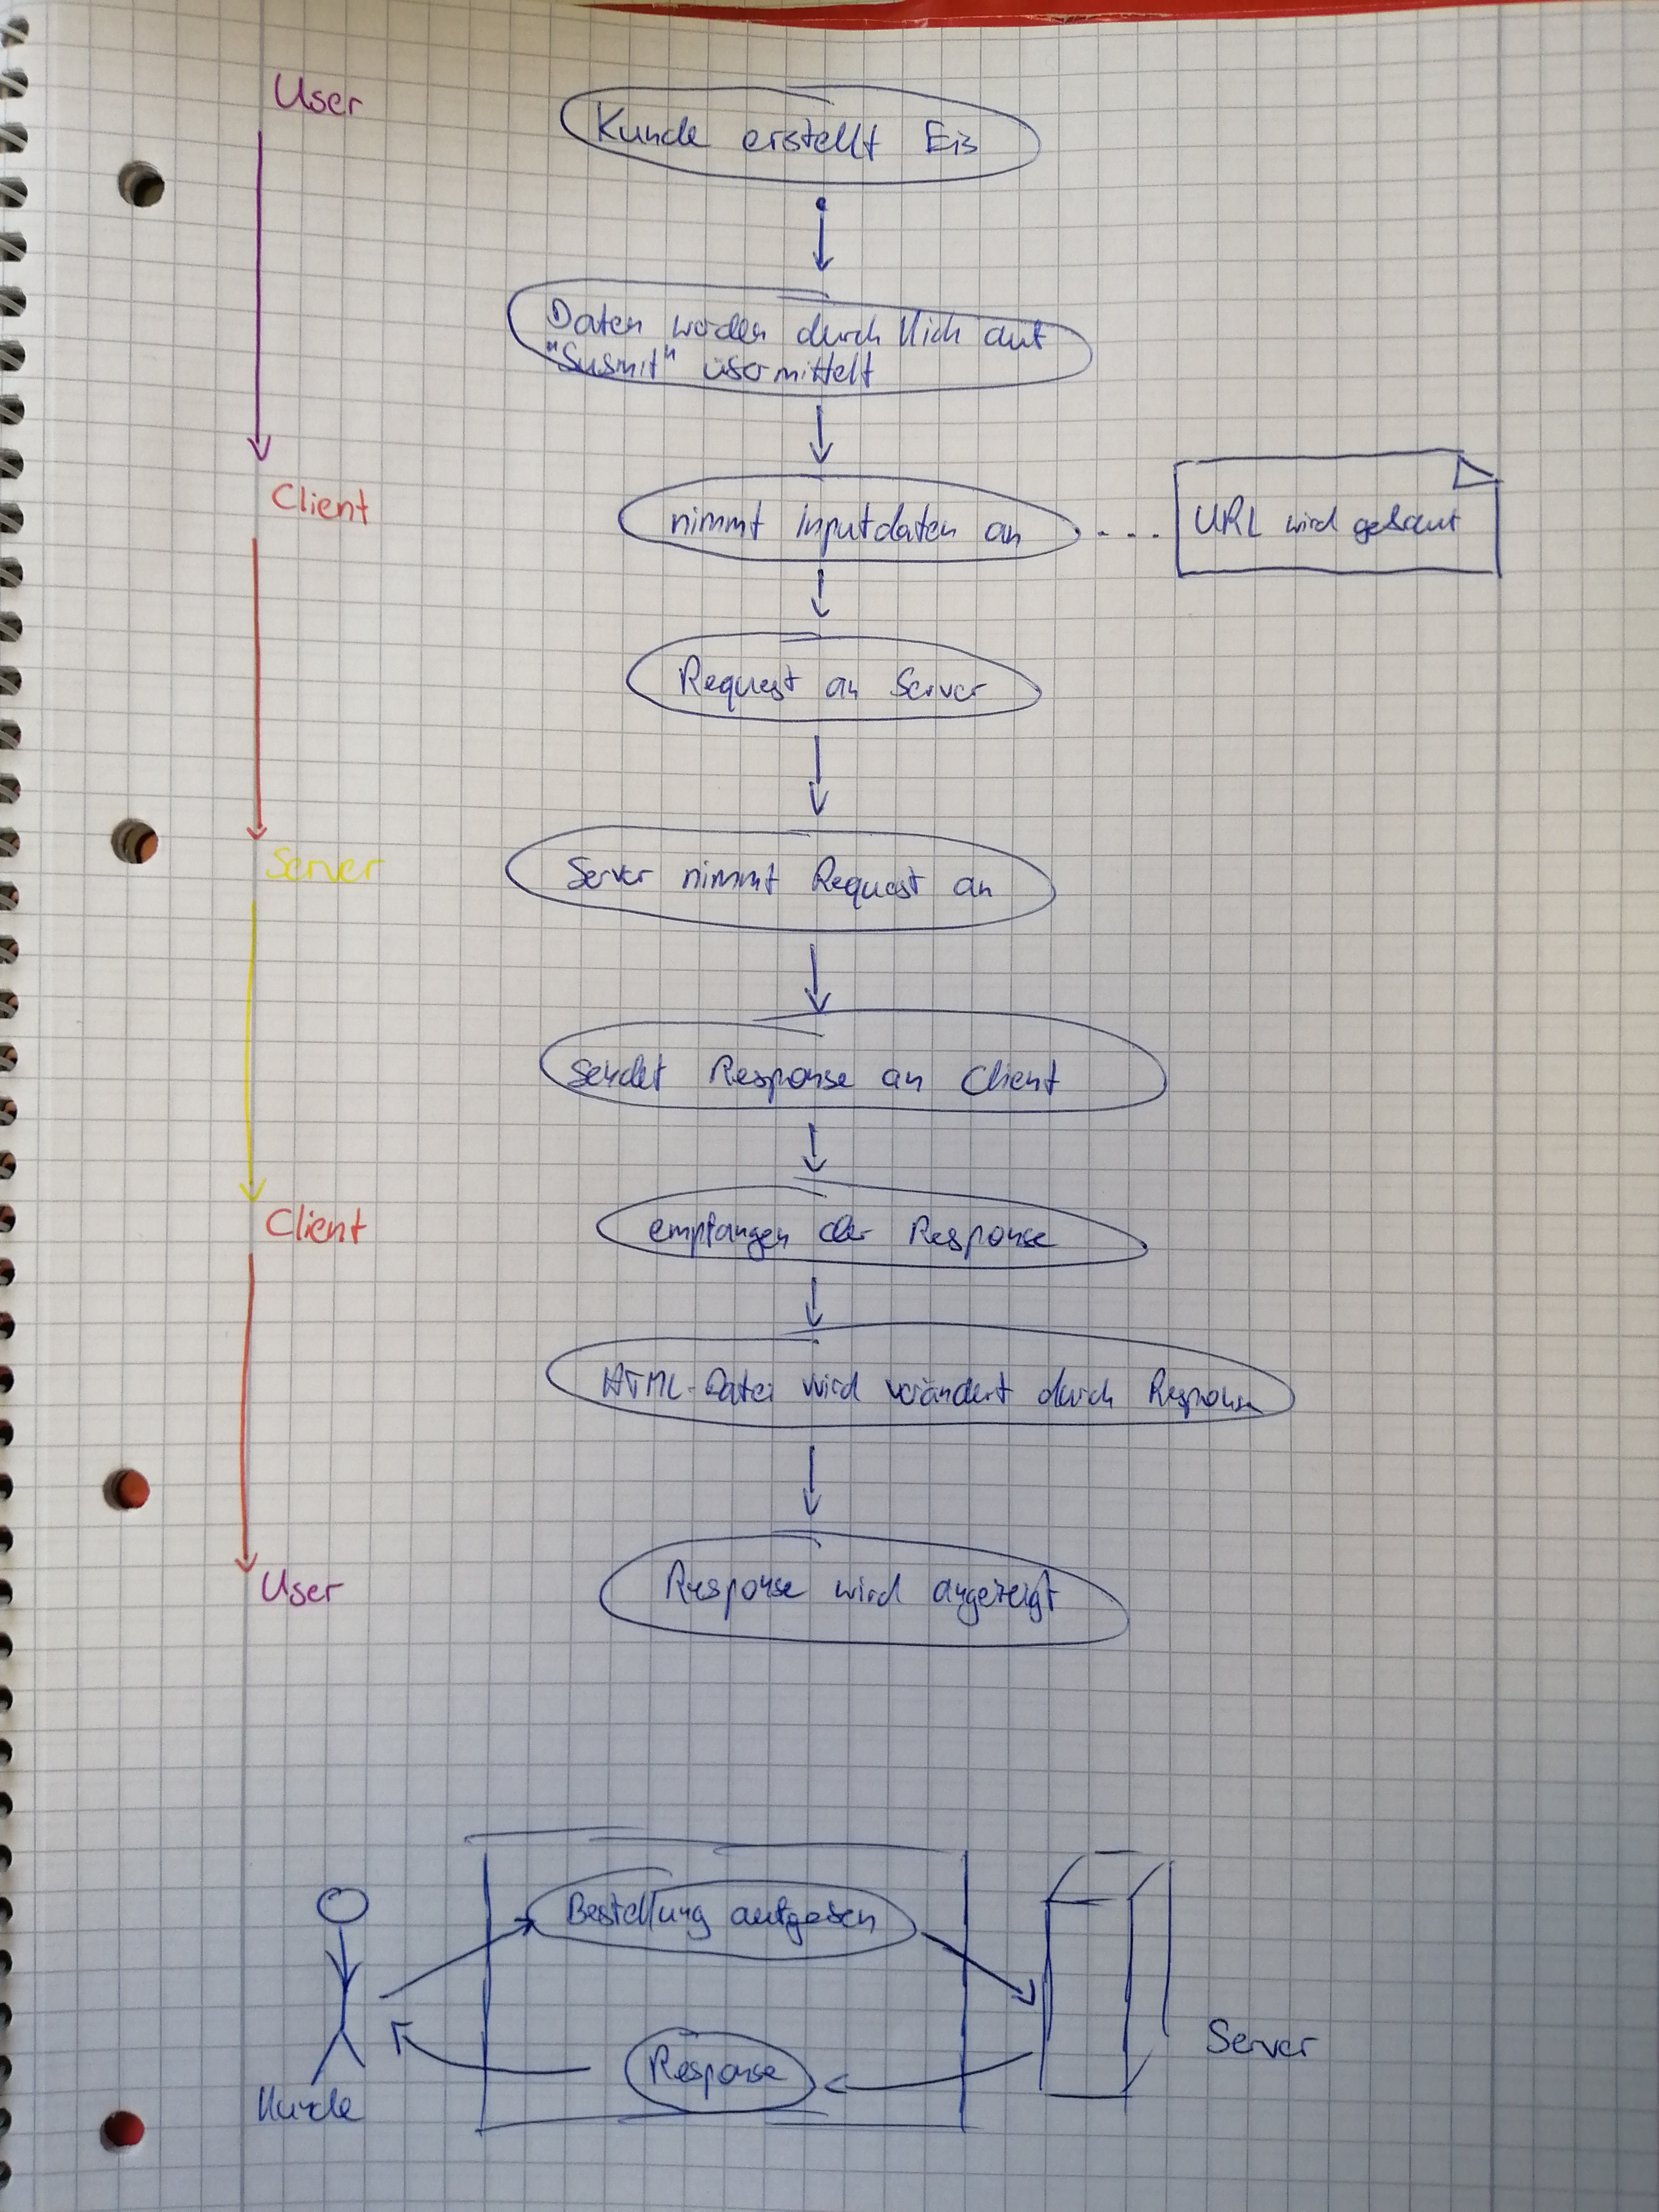 User
Kunde erstellt Eis
Daten werden durch Klick auf
"Submit" übermittelt
Client
nimmt Inputdaten an
URL wird gebaut
Request an Server
Server
Server nimmt Request an
sendet Response an Client
Client
empfangen der Response
HTML-Datei wird verändert durch Response
User
Response wird angezeigt
Bestellung aufgeben
Response
Server
Kunde